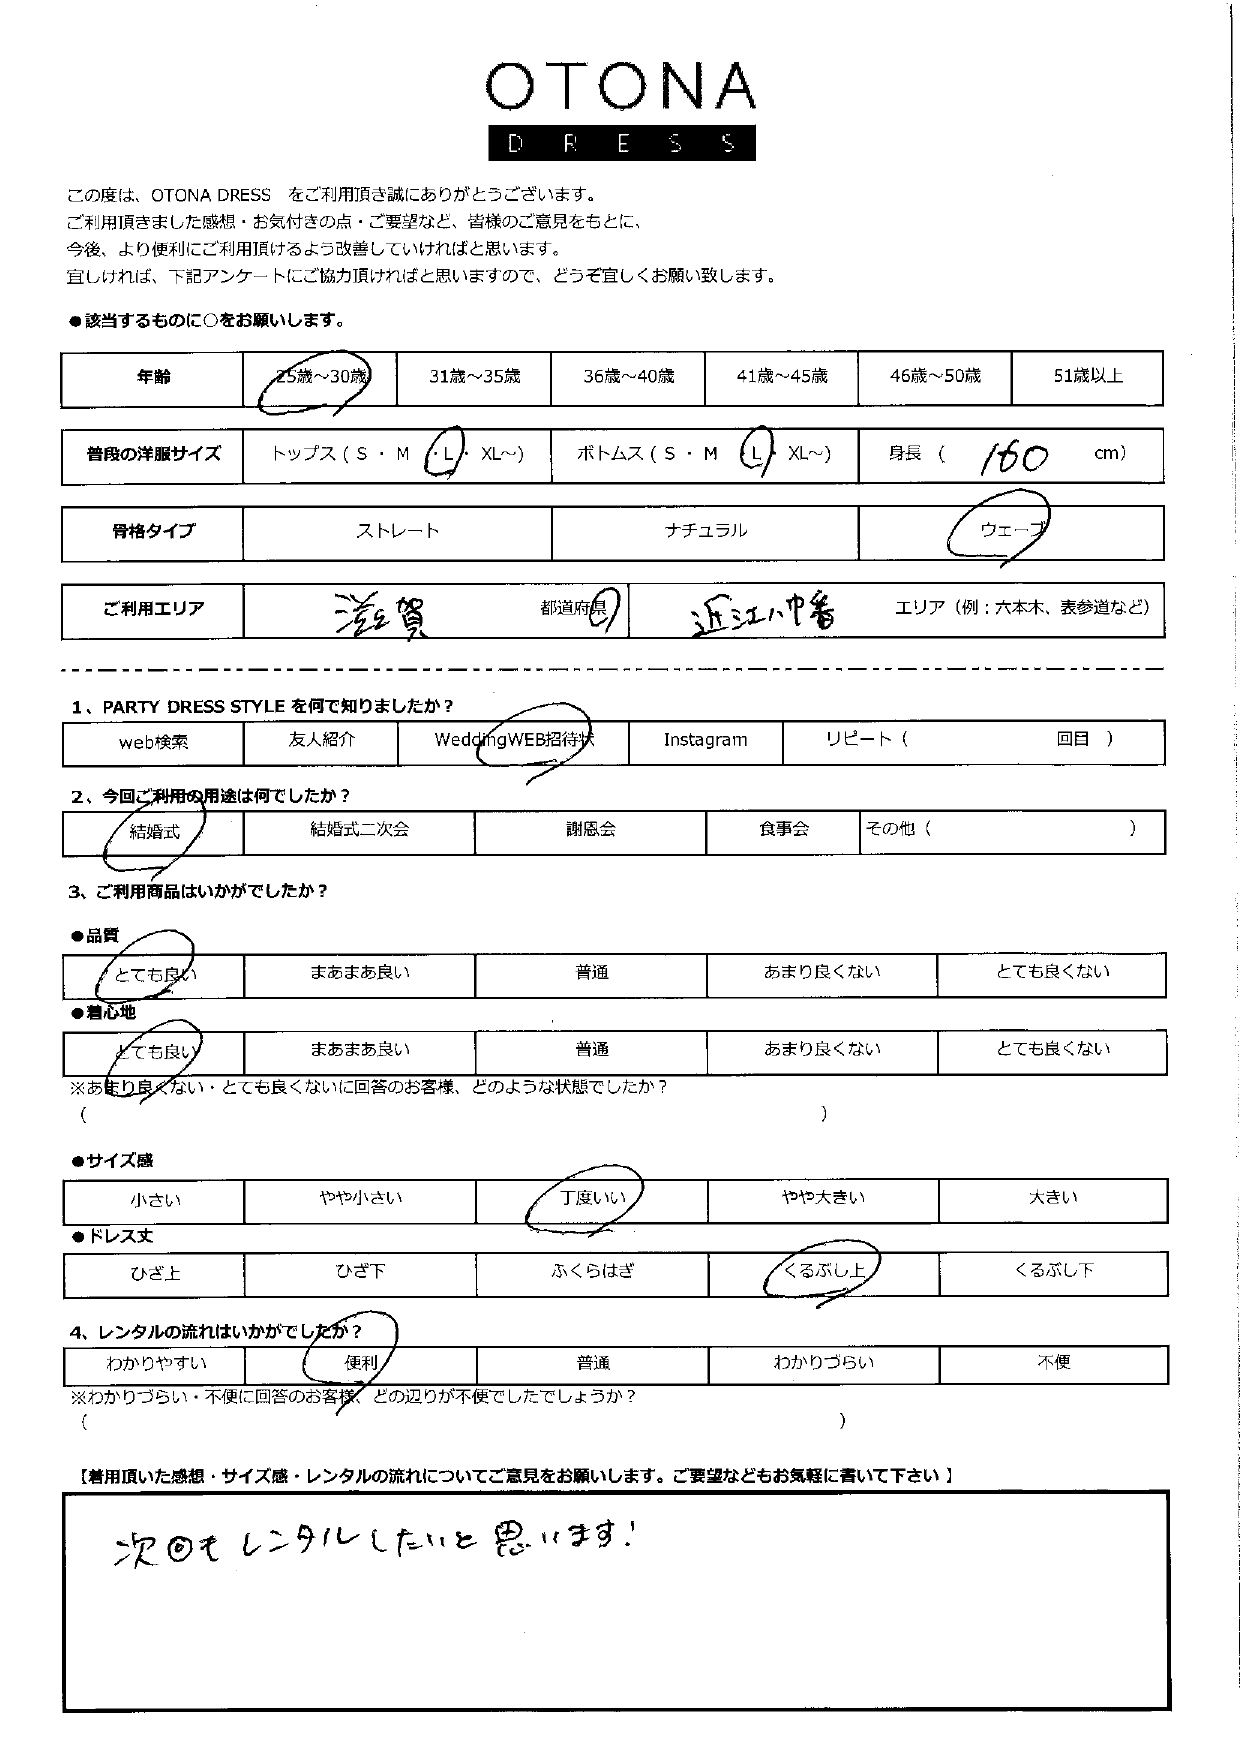 OTONA
DRESS
この度は、OTONA DRESS をご利用頂き誠にありがとうございます。
ご利用頂きました感想・お気付きの点・ご要望など、皆様のご意見をもとに、
今後、より便利にご利用頂けるよう改善していければと思います。
宜しければ、下記アンケートにご協力頂ければと思いますので、どうぞ宜しくお願い致します。
●該当するものに○をお願いします。
年齢 25歳～30歳 31歳～35歳 36歳～40歳 41歳～45歳 46歳～50歳 51歳以上
普段の洋服サイズ トップス ( S ・ M ・L・ XL～) ボトムス ( S ・ M ・L・ XL～) 身長 ( 160 cm)
骨格タイプ ストレート ナチュラル ウェーブ
ご利用エリア 滋賀 都道府県 近江八幡 エリア（例：六本木、表参道など）
1、PARTY DRESS STYLE を何で知りましたか？
web検索 友人紹介 WeddingWEB招待状 Instagram リピート ( 回目 )
2、今回ご利用の用途は何でしたか？
結婚式 結婚式二次会 謝恩会 食事会 その他 ( )
3、ご利用商品はいかがでしたか？
●品質
とても良い まあまあ良い 普通 あまり良くない とても良くない
●着心地
とても良い まあまあ良い 普通 あまり良くない とても良くない
※あまり良くない・とても良くないに回答のお客様、どのような状態でしたか？
( )
●サイズ感
小さい やや小さい 丁度いい やや大きい 大きい
●ドレス丈
ひざ上 ひざ下 ふくらはぎ くるぶし上 くるぶし下
4、レンタルの流れはいかがでしたか？
わかりやすい 便利 普通 わかりづらい 不便
※わかりづらい・不便に回答のお客様、どの辺りが不便でしたでしょうか？
( )
【着用頂いた感想・サイズ感・レンタルの流れについてご意見をお願いします。ご要望などもお気軽に書いて下さい】
次回もレンタルしたいと思います！